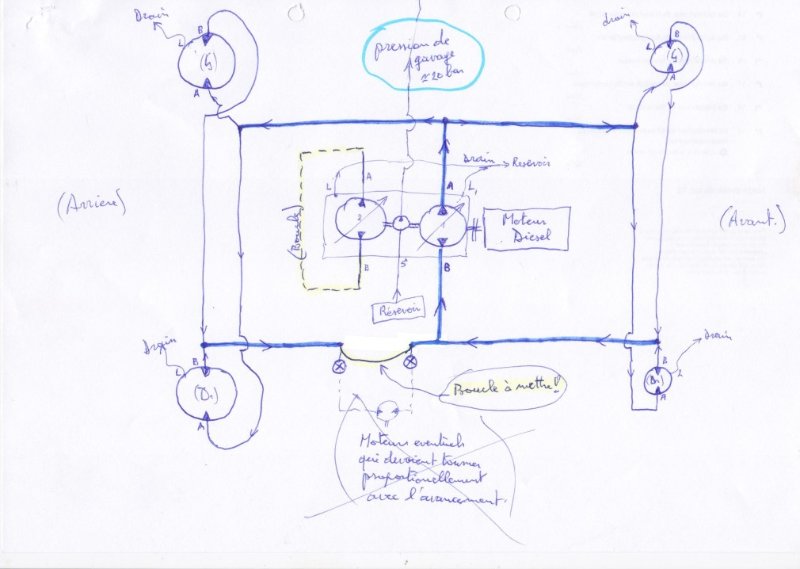 Drain
L
B
(G)
A
pression de
gavage
≈ 20 bar
drain
L
B
(G)
A
(Arrière)
(Boucle)
L
A
2
B
S
Drain → Reservoir
A
L1
1
B
Moteur
Diesel
Réservoir
(Avant.)
Drain
L
B
(D1)
A
Boucle à mettre!
Drain
B
L
A
Moteurs eventuels
qui devraient tourner
proportionellement
avec l'avancement.